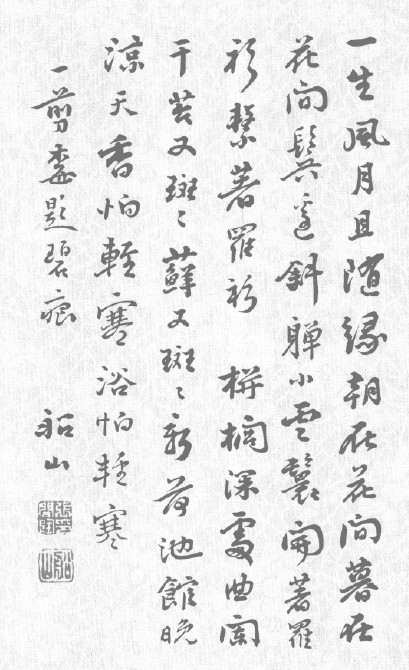 一生風月且随緣朝在花间暮在
花间鬓邊斜軃小雲鬟開著羅
衫繫著羅衫 栟榈深處曲闌
干苔又斑〻蘚又斑〻新荷池館晚
涼天香怕輕寒浴怕輕寒
一剪梅題碧痕 船山
船山